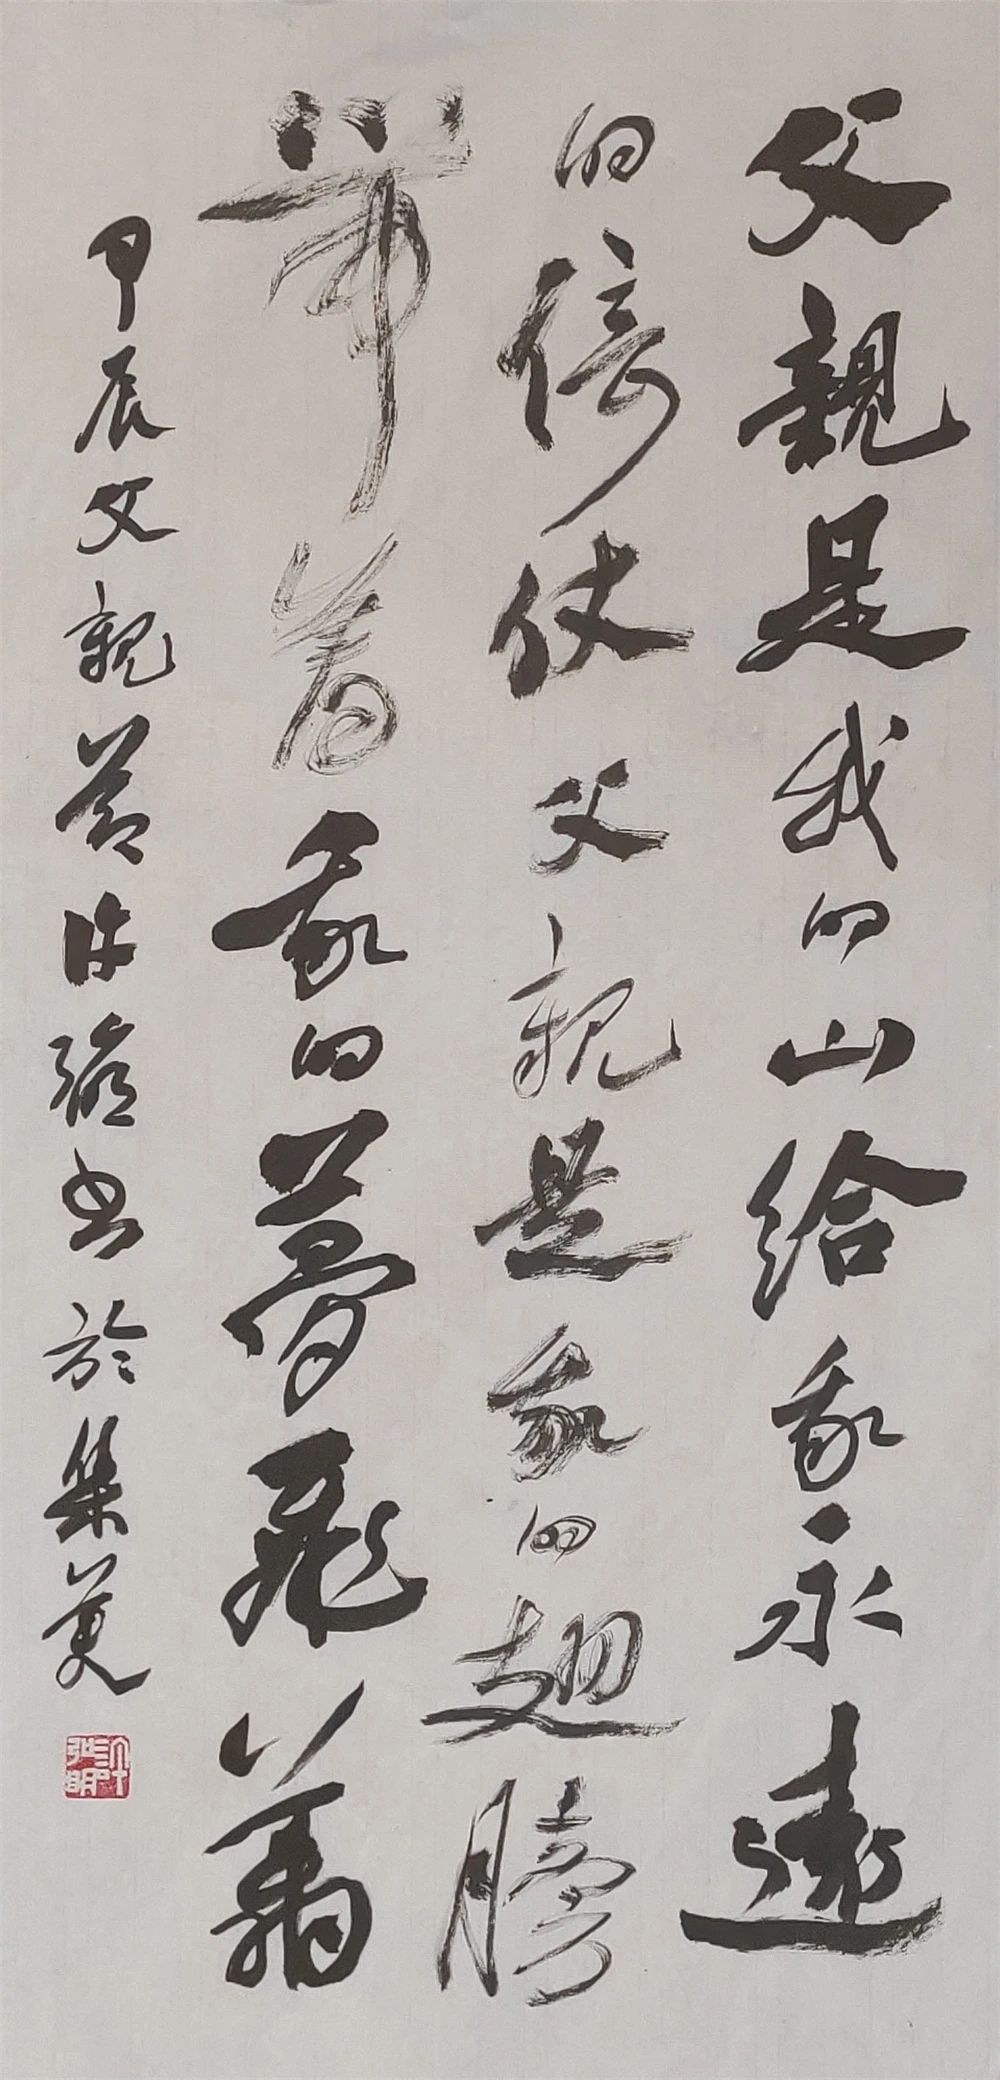 父親是我的山給我永遠
的倚仗父親是我的翅膀
帶着我的夢飛
甲辰父親節許書於集美